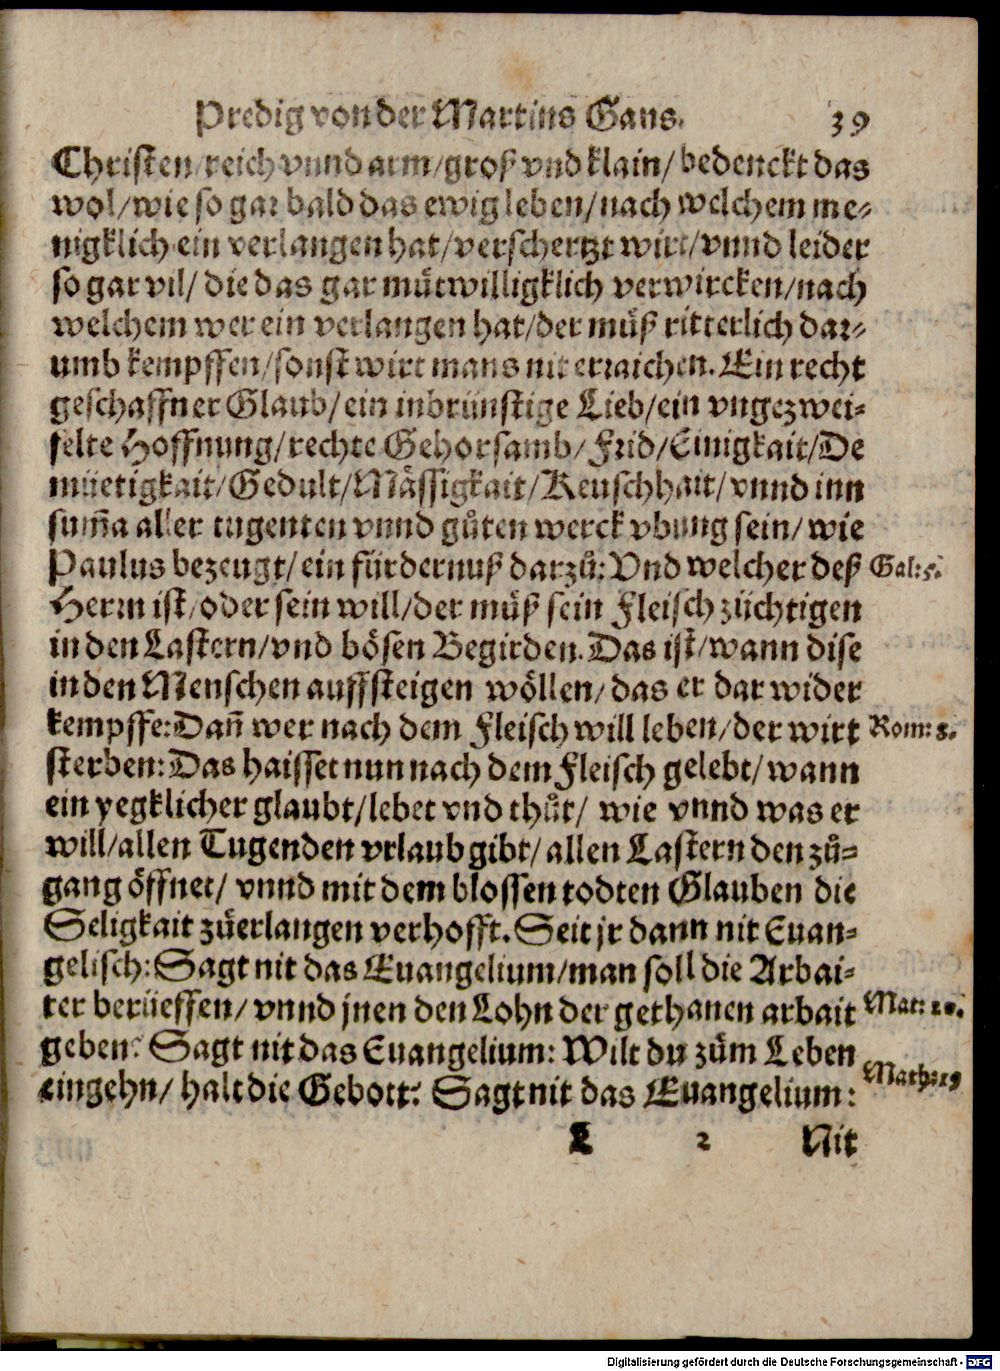 Predig von der Martins Gans. 39
Christen/reich vnnd arm/groß vnd klain/bedenckt das
wol/wie so gar bald das ewig leben/nach welchem me⸗
nigklich ein verlangen hat/verschertzt wirt/vnnd leider
so gar vil/die das gar můtwilligklich verwircken/nach
welchem wer ein verlangen hat/der můß ritterlich dar⸗
umb kempffen/sonst wirt mans nit erraichen. Ein recht
geschaffner Glaub/ein inbrünstige Lieb/ein vngezwei⸗
felte Hoffnung/rechte Gehorsamb/Frid/Einigkait/De
müetigkait/Gedult/Mässigkait/Keuschhait/vnnd inn
sum̃a aller tugenten vnnd gůten werck vbung sein/wie
Paulus bezeugt/ein fürdernuß darzů: Vnd welcher deß Gal: 5.
Herrn ist/oder sein will/der můß sein Fleisch züchtigen
in den Lastern/vnd bösen Begirden. Das ist/wann dise
in den Menschen auffsteigen wöllen/das er dar wider
kempffe: Dan̄ wer nach dem Fleisch will leben/der wirt Rom: 8.
sterben: Das haisset nun nach dem Fleisch gelebt/wann
ein yegklicher glaubt/lebet vnd thůt/wie vnnd was er
will/allen Tugenden vrlaub gibt/allen Lastern den zů⸗
gang öffnet/vnnd mit dem blossen todten Glauben die
Seligkait zůerlangen verhofft. Seit jr dann nit Euan⸗
gelisch: Sagt nit das Euangelium/man soll die Arbai⸗
ter berüeffen/vnnd jnen den Lohn der gethanen arbait Mat: 20.
geben: Sagt nit das Euangelium: Wilt du zům Leben
eingehn/halt die Gebott: Sagt nit das Euangelium: Math: 19
L 2 Nit
Digitalisierung gefördert durch die Deutsche Forschungsgemeinschaft - DFG